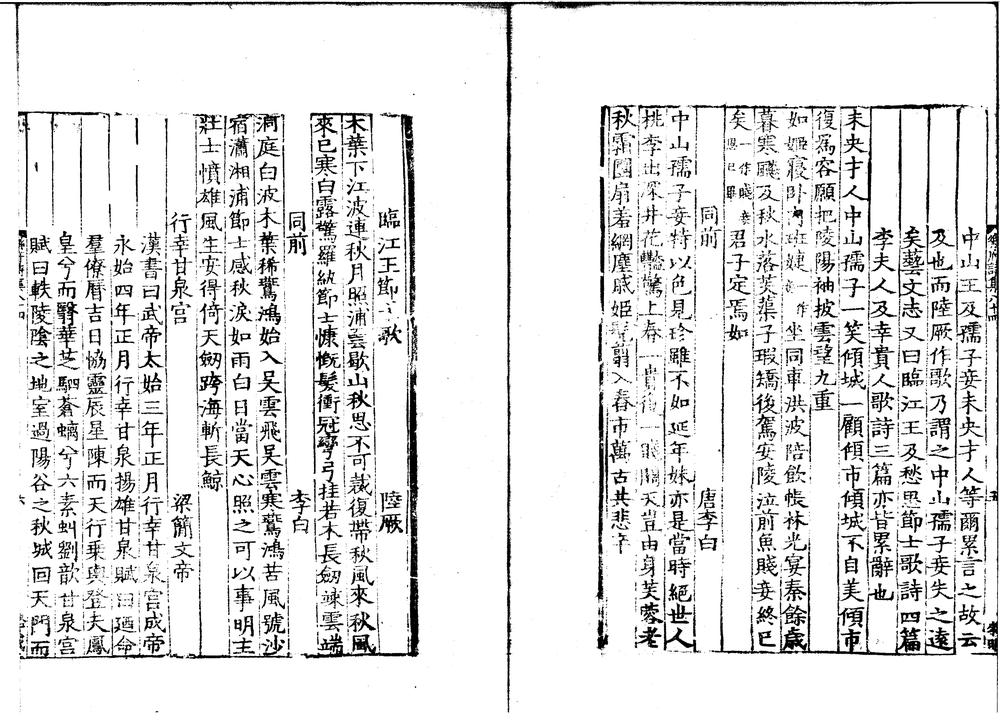 中山王及孺子妾未央才人等爾累言之故云
及也而陸厥作歌乃謂之中山孺子妾失之遠
矣藝文志又曰臨江王及愁思節士歌詩四篇
李夫人及幸貴人歌詩三篇亦皆累辭也
未央才人中山孺子一笑傾城一顧傾市傾城不自美傾市
復爲容願把陵陽袖披雲望九重
如姬寢卧内班婕一作坐同車洪波陪飲帳林光宴秦餘歳
暮寒飈及秋水落芙蕖子瑕矯後駕安陵泣前魚賤妾終已
矣一作賤妾恩已畢君子定焉如
同前 唐李白
中山孺子妾特以色見珍雖不如延年妹亦是當時絶世人
桃李出深井花豔驚上春一貴復一賤關天豈由身芙蓉老
秋霜團扇羞網塵戚姬髠翦入舂市萬古共悲辛
臨江王節士歌 陸厥
木葉下江波連秋月照浦雲歇山秋思不可裁復帶秋風來秋風
來已寒白露驚羅紈節士慷慨髪衝冠彎弓挂若木長劒竦雲端
同前 李白
洞庭白波木葉稀鷰鴻始入吳雲飛吳雲寒鷰鴻苦風號沙
宿瀟湘浦節士感秋淚如雨白日當天心照之可以事明主
壯士憤雄風生安得倚天劒跨海斬長鯨
行幸甘泉宫 梁簡文帝
漢書曰武帝太始三年正月行幸甘泉宫成帝
永始四年正月行幸甘泉揚雄甘泉賦曰廼命
羣僚曆吉日協靈辰星陳而天行乗輿登夫鳳
皇兮而翳華芝駟蒼螭兮六素虯劉歆甘泉宫
賦曰軼陵陰之地室過陽谷之秋城回天門而